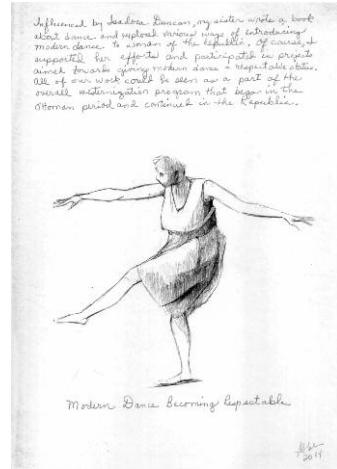 Influenced by Isadora Duncan, my sister wrote a book
about dance and explored various ways of introducing
modern dance to women of the Republic. Of course, I
supported her efforts and participated in projects
aimed towards giving modern dance a respectable status.
All of our work could be seen as a part of the
overall westernization program that began in the
Ottoman period and continued in the Republic.
Modern Dance Becoming Respectable
2014